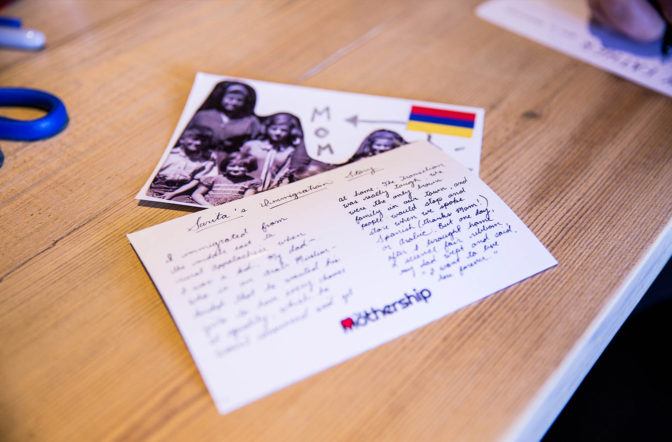 MOM
Santa's Immigration Story
I immigrated from
the middle east to
rural Appalachia when
I was a kid. My dad -
who is an Arab Muslim -
decided that he wanted his
girls to have every chance
at equality, which he
and got
at home. The transition
was really tough. We
were the only brown
family in our town, and
people would stop and
stare when we spoke
Spanish (thanks Mom!)
or Arabic. But one day,
after I brought home
a science fair ribbon,
my dad wept and said,
"I want to live
here forever."
mothership